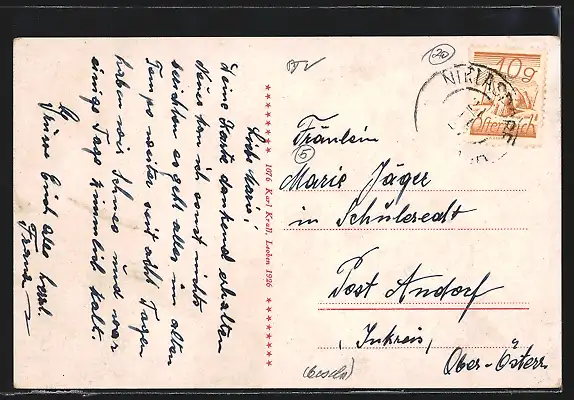 Liebe Marie!
Deine Karte dankend erhalten
Neues kan ich sonst nichts
berichten es geht alles im alten
Tempo weiter seit acht Tagen
haben wir Schnee und war
einige Tage ziemlich kalt.
Es
grüsse Euch alle herzl.
Franz
1076 Karl Krall, Leoben 1926
BTV
20
10g
NIKLASD
Österreich
Fräulein
5
Marie Jäger
in Schüleredt
Post Andorf
(Inkreis)
Ober-Österr.